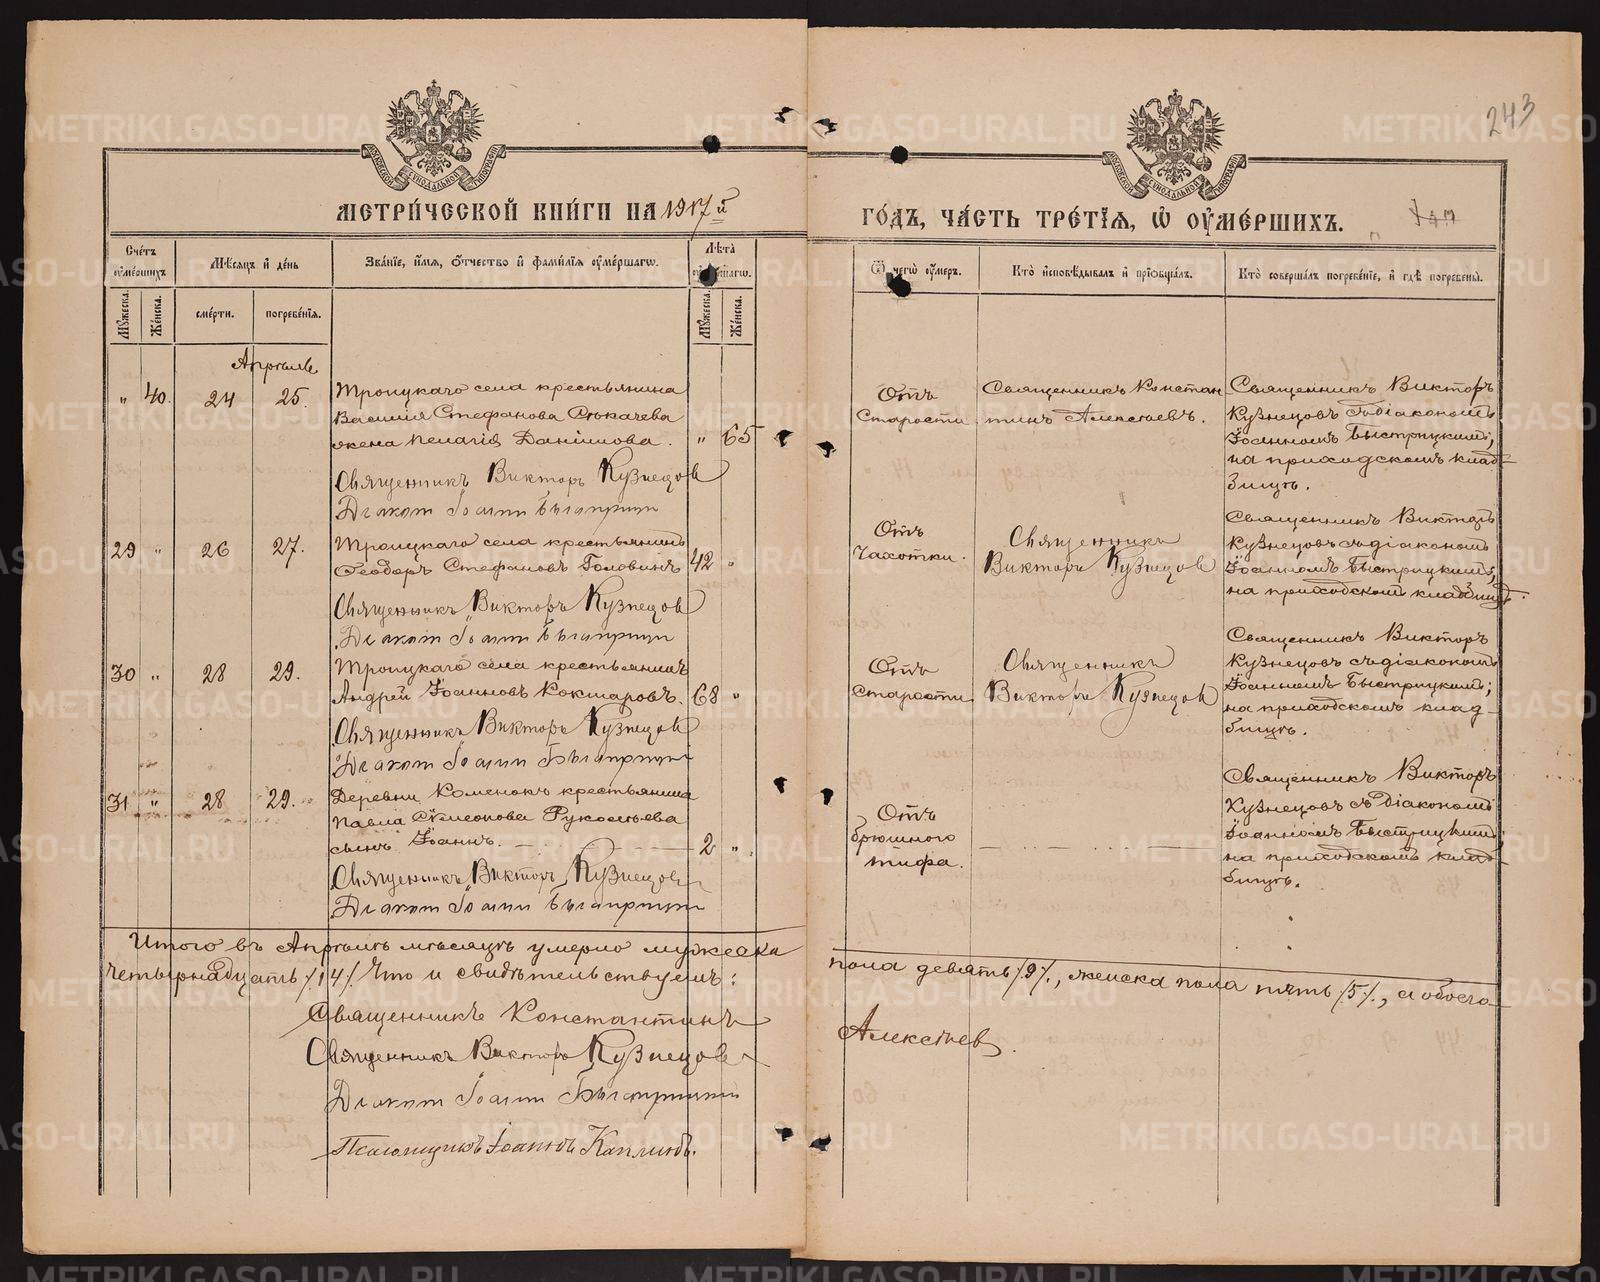 243
МЕТРИ́ЧЕСКОЙ КНИ́ГИ НА 1917й ГО́ДЪ, ЧА́СТЬ ТРЕ́ТІЯ, Ѡ ОУМЕ́РШИХЪ.
Сче́тъ оуме́ршихъ
Мꙋ́жеска.
Же́нска.
Мѣ́сяцъ и де́нь
сме́рти.
погребе́нія.
Зва́ніе, и́мя, о́тчество и фами́лія оуме́ршагѡ.
Лѣ́та оуме́ршагѡ.
Мꙋ́жеска.
Же́нска.
Ѿ чегѡ̀ оу́меръ.
Кто̀ исповѣ́дывалъ и пріобща́лъ.
Кто̀ соверша́лъ погребе́ніе, и гдѣ̀ погребены̀.
Апрѣль
" 40. 24 25.
Троицкаго села крестьянина
Василія Стефанова Сѣкачева
жена Пелагія Даніилова. " 65
Священникъ Викторъ Кузнецовъ
Діаконъ Іоаннъ Быстрицкій
Отъ
старости
Священникъ Констан
тинъ Алексѣевъ.
Священникъ Викторъ
Кузнецовъ съ діакономъ
Іоанномъ Быстрицкимъ;
на приходскомъ клад-
бищѣ.
29 " 26 27.
Троицкаго села крестьянинъ
Ѳеодоръ Стефановъ Головинъ 42 "
Священникъ Викторъ Кузнецовъ
Діаконъ Іоаннъ Быстрицкій
Отъ
чахотки.
Священникъ
Викторъ Кузнецовъ
Священникъ Викторъ
Кузнецовъ съ діакономъ
Іоанномъ Быстрицкимъ;
на приходскомъ кладбищѣ.
30 " 28 29.
Троицкаго села крестьянинъ
Андрей Іоанновъ Кокшаровъ. 68 "
Священникъ Викторъ Кузнецовъ
Діаконъ Іоаннъ Быстрицкій
Отъ
старости
Священникъ
Викторъ Кузнецовъ
Священникъ Викторъ
Кузнецовъ съ діакономъ
Іоанномъ Быстрицкимъ;
на приходскомъ клад-
бищѣ.
31 " 28 29.
Деревни Коменокъ крестьянина
Павла Сѵмеонова Рукомьева
сынъ Іоаннъ. 2 "
Священникъ Викторъ Кузнецовъ
Діаконъ Іоаннъ Быстрицкій
Отъ
брюшного
тифа.
Священникъ Викторъ
Кузнецовъ съ діакономъ
Іоанномъ Быстрицкимъ;
на приходскомъ клад-
бищѣ.
Итого въ Апрѣлѣ мѣсяцѣ умерло мужеска пола девять /9/., женска пола пять /5/., а обоего
четырнадцать /14/. Что и свидѣтельствуемъ:
Священникъ Константинъ Алексѣевъ.
Священникъ Викторъ Кузнецовъ
Діаконъ Іоаннъ Быстрицкій
Псаломщикъ Іоаннъ Каплинъ.
METRIKI.GASO-URAL.RU